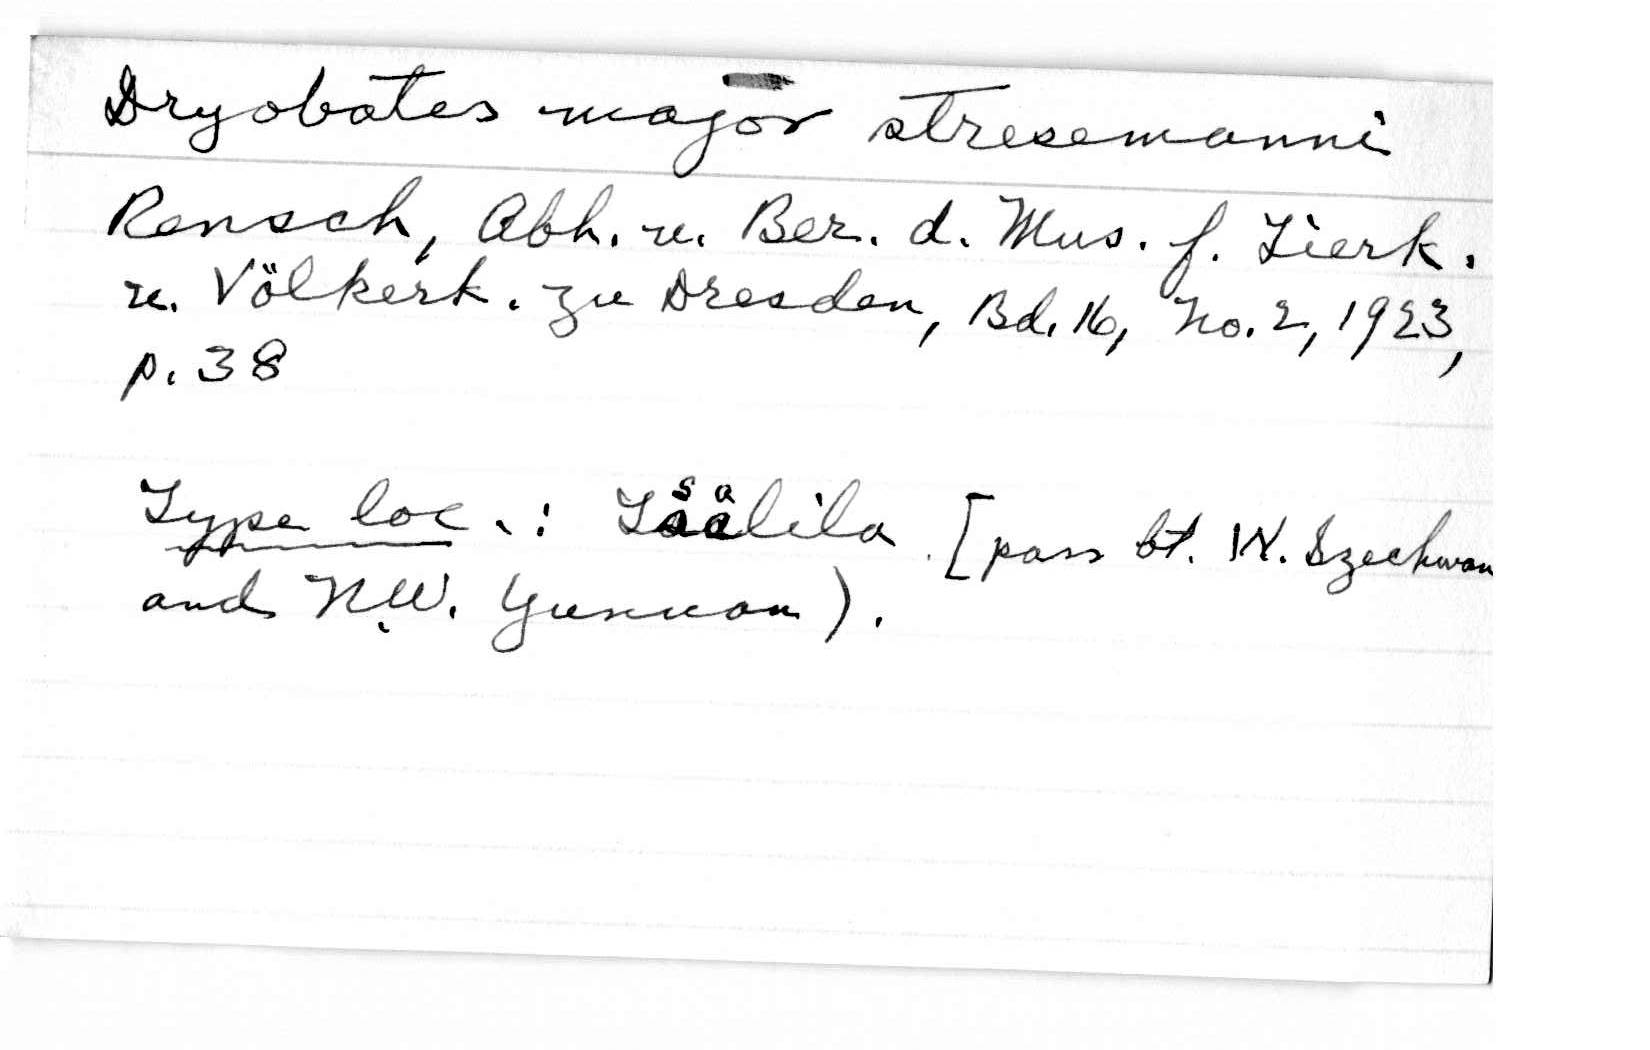 Dryobates major stresemanni
Rensch, Abh. u. Ber. d. Mus. f. Tierk.
u. Völkerk. zu Dresden, Bd. 16, No. 2, 1923,
p. 38
Type loc.: Tsalila [pass bt. W. Szechwan
and N.W. Yunnan).